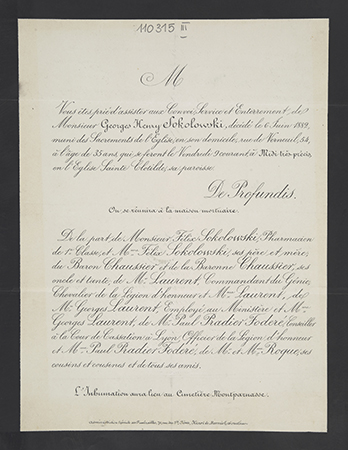 110315 III
M
Vous êtes prié d'assister aux Convoi, Service et Enterrement de
Monsieur Georges Henry Sokolowski, décédé le 6 Juin 1889,
muni des Sacrements de l'Eglise, en son domicile, rue de Verneuil, 54,
à l'âge de 35 ans qui se feront le Vendredi courant à Midi très précis,
en l'Eglise Sainte Clotilde, sa paroisse.
De Profundis.
On se réunira à la maison mortuaire.
De la part de Monsieur Félix Sokolowski, Pharmacien
de 1re Classe, et Mme Félix Sokolowski, ses père et mère,
du Baron Chaussier et de la Baronne Chaussier, ses
oncle et tante, de Mr Laurent, Commandant du Génie,
Chevalier de la Légion d'honneur et Mme Laurent, de
Mr Georges Laurent, Employé au Ministère et Mme
Georges Laurent, de Mr Paul Pradier Fodéré, Conseiller
à la Cour de Cassation à Lyon, Officier de la Légion d'honneur
et Mme Paul Pradier Fodéré, de Mr et Mme Roque, ses
cousins et cousines et de tous ses amis.
L'Inhumation aura lieu au Cimetière Montparnasse.